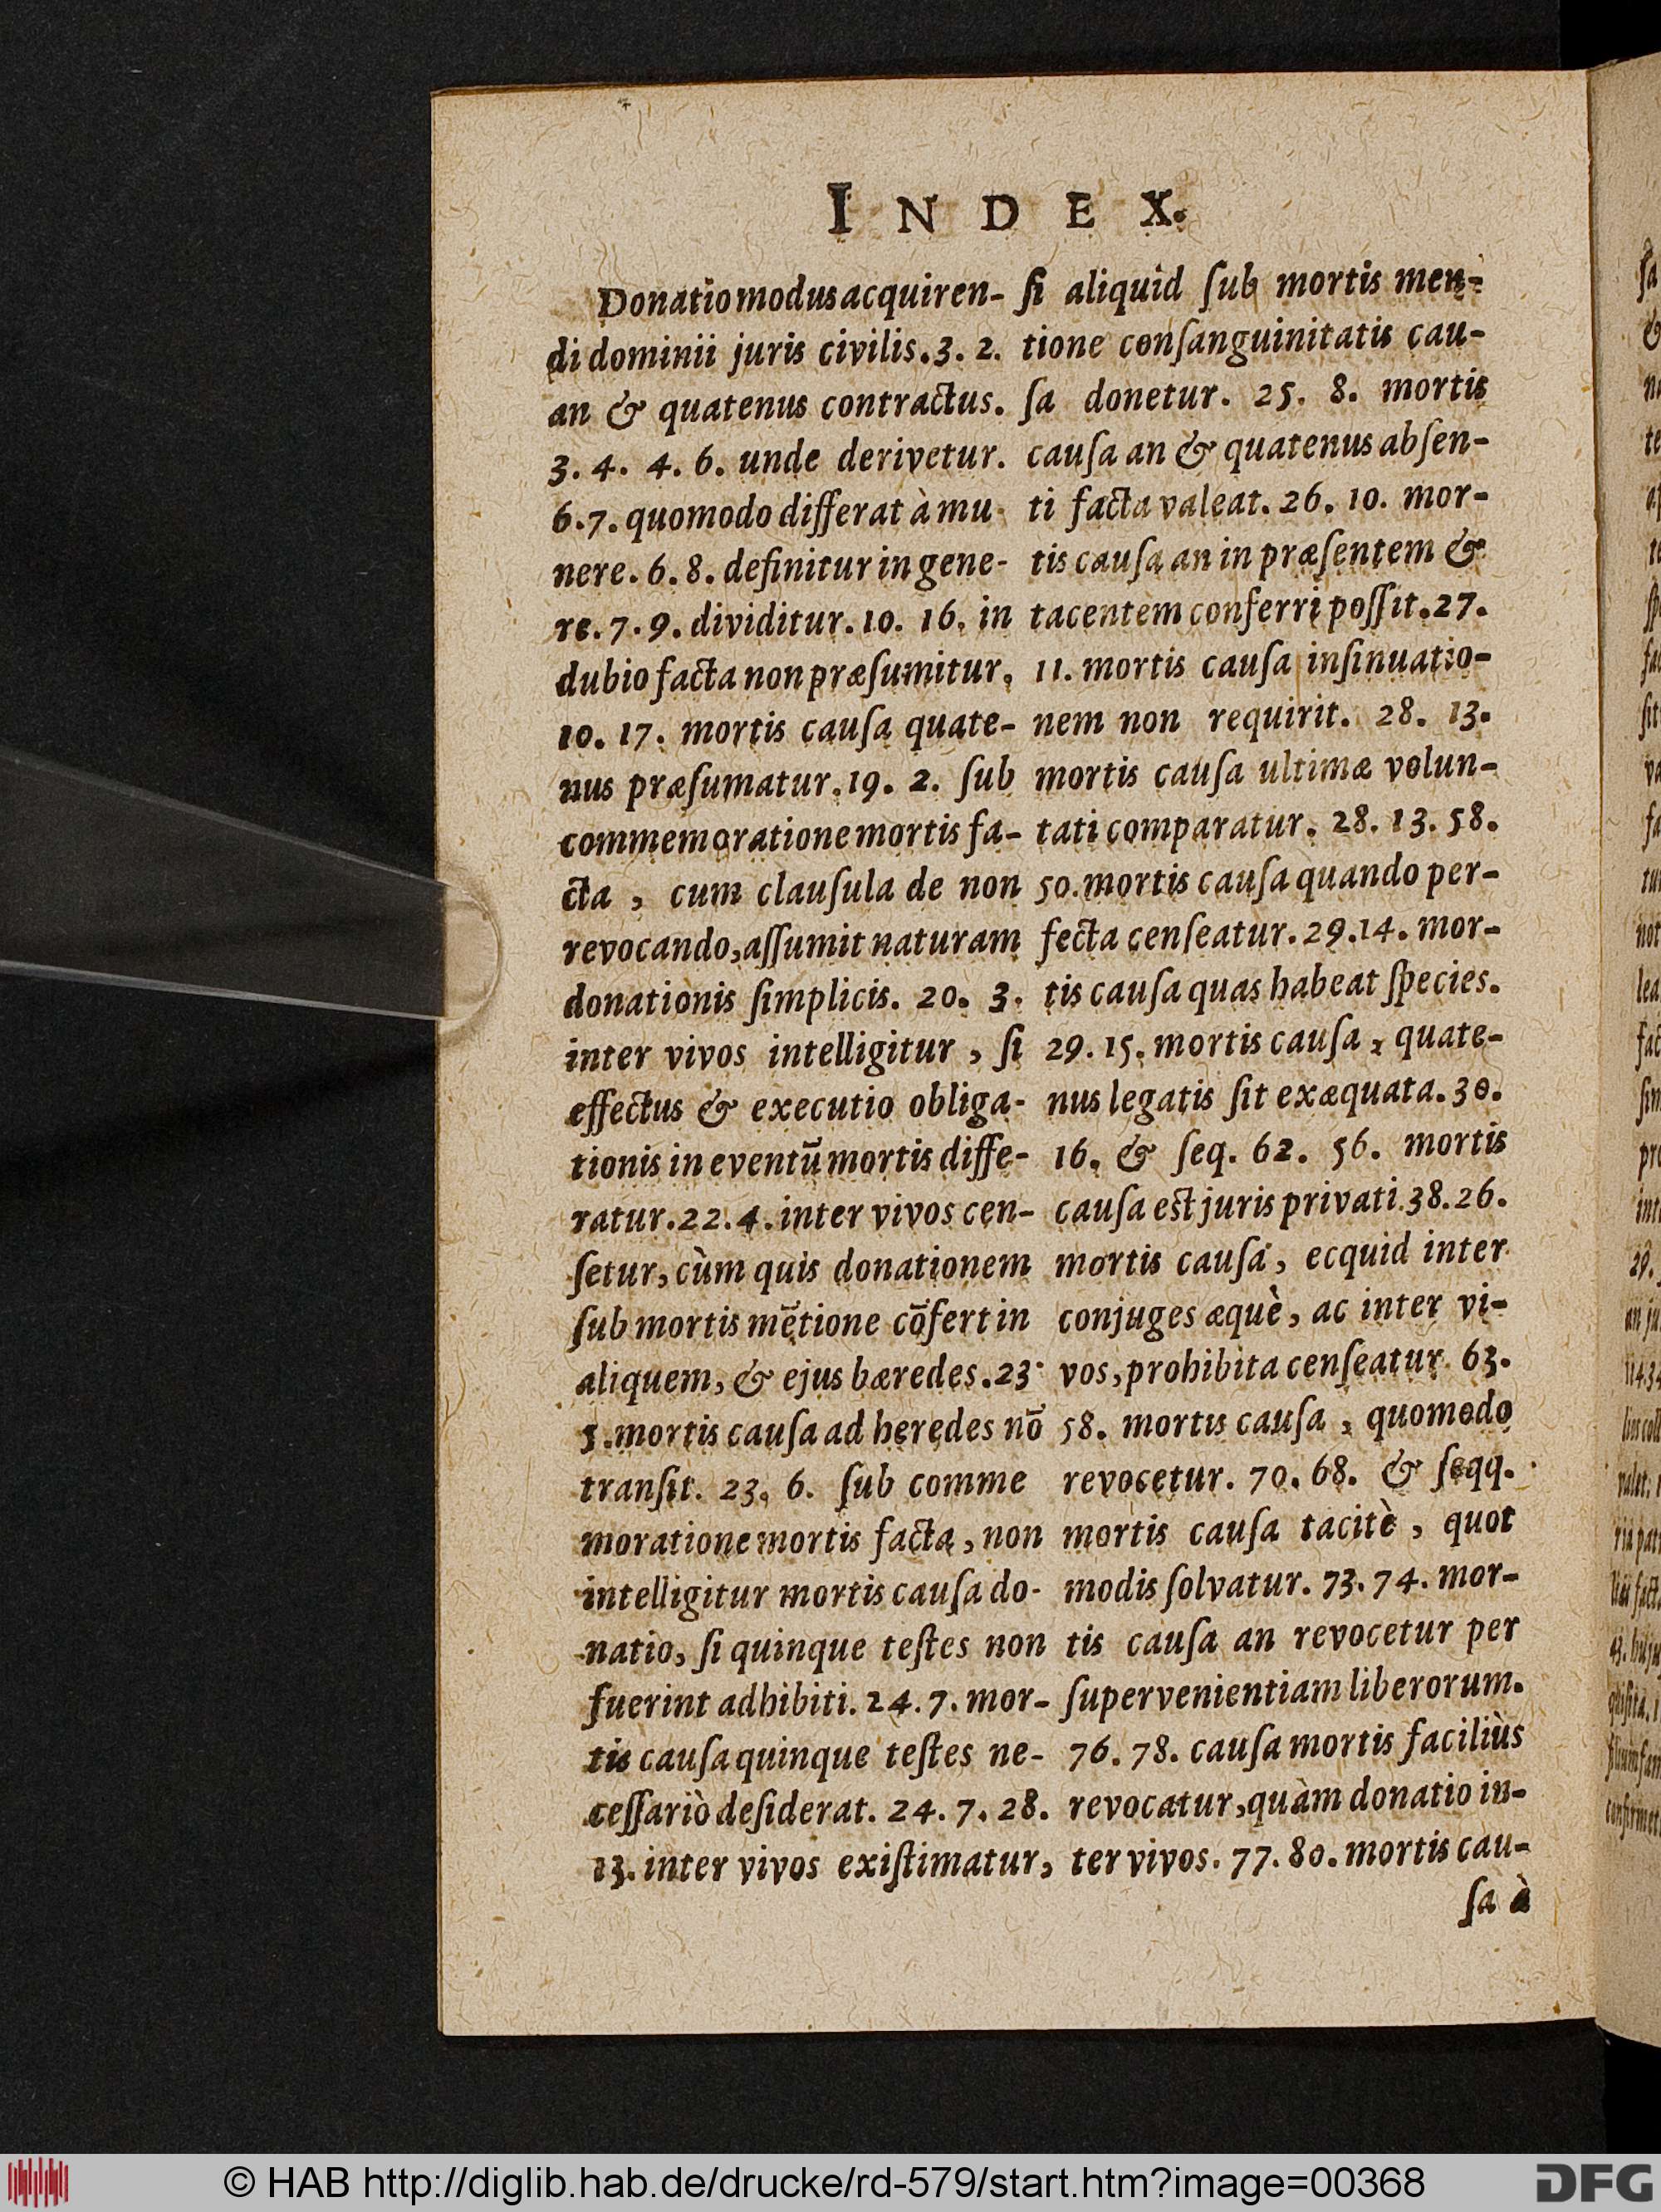 INDEX.
Donatio modus acquiren-
di dominii juris civilis. 3. 2.
an & quatenus contractus.
3. 4. 4. 6. unde derivetur.
6. 7. quomodo differat à mu-
nere. 6. 8. definitur in gene-
re. 7. 9. dividitur. 10. 16. in
dubio facta non præſumitur,
10. 17. mortis cauſa quate-
nus præſumatur. 19. 2. ſub
commemoratione mortis fa-
cta, cum clauſula de non
revocando, aſſumit naturam
donationis ſimplicis. 20. 3.
inter vivos intelligitur, ſi
effectus & executio obliga-
tionis in eventū mortis diffe-
ratur. 22. 4. inter vivos cen-
ſetur, cùm quis donationem
ſub mortis mētione cōfert in
aliquem, & ejus bæredes. 23.
5. mortis cauſa ad heredes nō
tranſit. 23. 6. ſub comme
moratione mortis facta, non
intelligitur mortis cauſa do-
natio, ſi quinque teſtes non
fuerint adhibiti. 24. 7. mor-
tis cauſa quinque teſtes ne-
ceſſariò deſiderat. 24. 7. 28.
13. inter vivos exiſtimatur,
ſi aliquid ſub mortis men-
tione conſanguinitatis cau-
ſa donetur. 25. 8. mortis
cauſa an & quatenus abſen-
ti facta valeat. 26. 10. mor-
tis cauſa an in præſentem &
tacentem conferri poſſit. 27.
11. mortis cauſa inſinuatio-
nem non requirit. 28. 13.
mortis cauſa ultimæ volun-
tati comparatur. 28. 13. 58.
50. mortis cauſa quando per-
fecta cenſeatur. 29. 14. mor-
tis cauſa quas habeat ſpecies.
29. 15. mortis cauſa, quate-
nus legatis ſit exæquata. 30.
16. & ſeq. 62. 56. mortis
cauſa eſt juris privati. 38. 26.
mortis cauſa, ecquid inter
conjuges æquè, ac inter vi-
vos, prohibita cenſeatur. 63.
58. mortis cauſa, quomodo
revocetur. 70. 68. & ſeqq.
mortis cauſa tacitè, quot
modis ſolvatur. 73. 74. mor-
tis cauſa an revocetur per
ſupervenientiam liberorum.
76. 78. cauſa mortis faciliùs
revocatur, quàm donatio in-
ter vivos. 77. 80. mortis cau-
ſa à
© HAB http://diglib.hab.de/drucke/rd-579/start.htm?image=00368
DFG